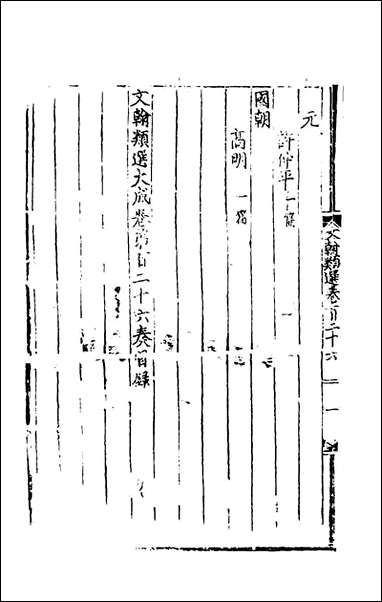 元
許仲平一篇
國朝
高明一篇
文翰類選大成卷第百二十六奏目錄
文翰類選卷百二十六 二 一